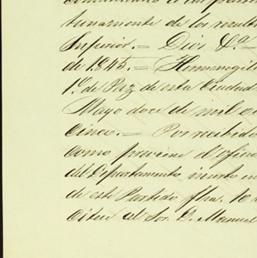 tunamente de los result
Superior.= Dios G.e
de 1845.= Hermenegil
1.o de Paz de esta Ciudad
Mayo doce de mil o
Cinco.= Por recibido
como previene el ofici
del Departamento
de este Partido fhã. 10 d
Cítese al Sor. D. Manuel